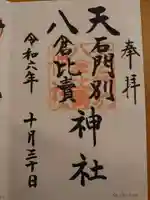 奉拝
天石門別
八倉比賣
神社
令和六年 十月三十日